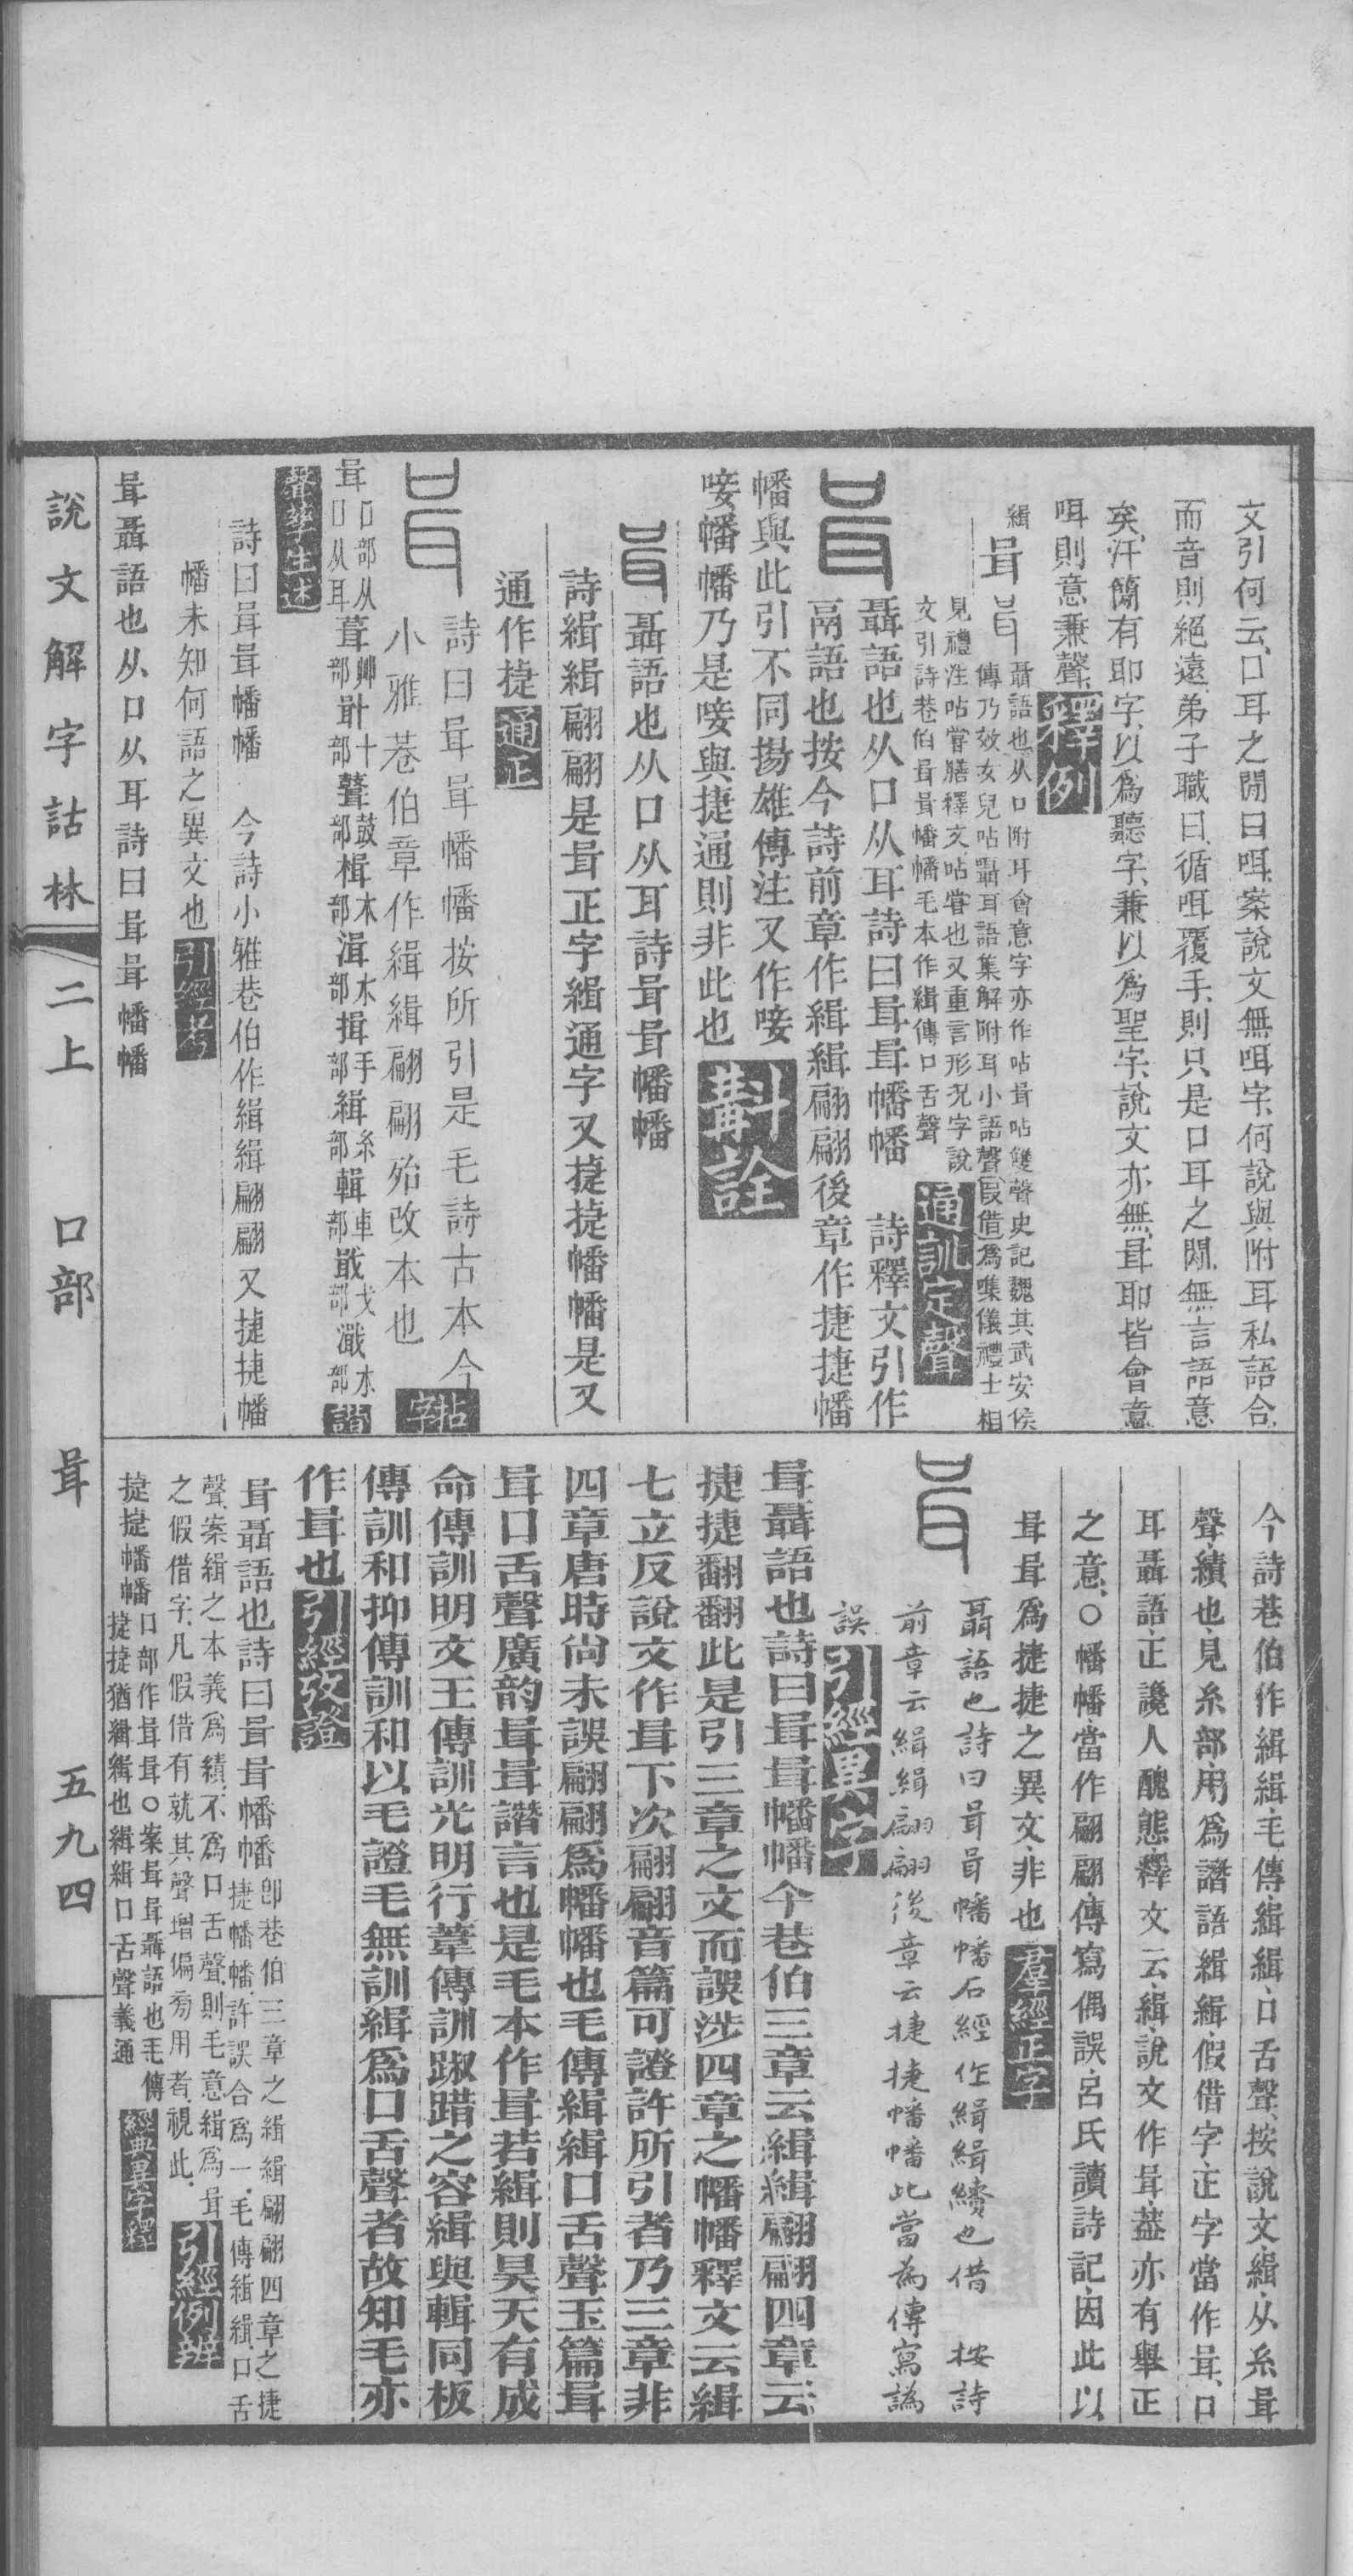 文引何云、口耳之閒曰咡、案說文無咡字、何說與附耳私語合、
而音則絕遠、弟子職曰、循咡覆手、則只是口耳之閒、無言語意
矣、汗簡有耶字、以爲聽字、兼以爲聖字、說文亦無、咠耶皆會意
咡則意兼聲、釋例
緝咠
聶語也从口附耳會意字亦作呫咠呫雙聲史記魏其武安侯
傳乃效女兒呫聶耳語集解附耳小語聲〔叚借〕爲㗱儀禮士相
見禮注呫嘗膳釋文呫嘗也又重言形况字說
文引詩巷伯咠咠幡幡毛本作緝傳口舌聲
通訓定聲
聶語也从口从耳詩曰咠咠幡幡 詩釋文引作
鬲語也按今詩前章作緝緝翩翩後章作捷捷幡
幡與此引不同揚雄傳注又作唼
唼幡幡乃是唼與捷通則非此也 斠詮
聶語也从口从耳詩咠咠幡幡
詩緝緝翩翩是咠正字緝通字又捷捷幡幡是又
通作捷 通正
詩曰咠咠幡幡按所引是毛詩古本今
小雅巷伯章作緝緝翩翩殆改本也 拈字
咠口部从口从耳葺艸部卙十部䁒鼓部楫木部湒水部揖手部緝糸部輯車部戢戈部濈水部 諧聲孳生述
詩曰咠咠幡幡 今詩小雅巷伯作緝緝翩翩又捷捷幡
幡未知何語之異文也 引經考
咠聶語也从口从耳詩曰咠咠幡幡
今詩巷伯作緝緝、毛傳、緝緝、口舌聲、按說文、緝、从糸咠
聲、績也、見糸部、用爲譖語緝緝、假借字、正字當作咠、口
耳聶語、正讒人醜態、釋文云、緝、說文作咠、葢亦有舉正
之意、○幡幡、當作翩翩、傳寫偶誤、呂氏讀詩記、因此以
咠咠爲捷捷之異文、非也、 羣經正字
聶語也詩曰咠咠幡幡石經作緝緝績也借 按詩
前章云緝緝翩翩後章云捷捷幡幡此當為傳寫譌
誤 引經異字
咠聶語也詩曰咠咠幡幡今巷伯三章云緝緝翩翩四章云
捷捷翻翻此是引三章之文而誤涉四章之幡幡釋文云緝
七立反說文作咠下次翩翩音篇可證許所引者乃三章非
四章唐時尚未誤翩翩爲幡幡也毛傳緝緝口舌聲玉篇咠
咠口舌聲廣韵咠咠譖言也是毛本作咠若緝則昊天有成
命傳訓明文王傳訓光明行葦傳訓踧踖之容緝與輯同板
傳訓和抑傳訓和以毛證毛無訓緝爲口舌聲者故知毛亦
作咠也 引經攷證
咠聶語也詩曰咠咠幡幡卽巷伯三章之緝緝翩翩四章之捷
捷幡幡、許誤合爲一、毛傳緝緝、口舌
聲、案緝之本義爲績、不爲口舌聲、則毛意緝爲咠
之假借字、凡假借有就其聲增偏旁用者、視此、 引經例辨
捷捷幡幡口部作咠咠○案咠咠聶語也毛傳
捷捷猶緝緝也緝緝口舌聲義通 經典異字釋
說文解字詁林 二上 口部 咠 五九四